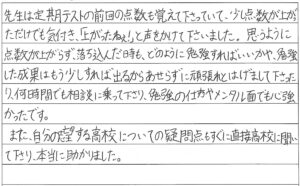 先生は定期テストの前回の点数も覚えて下さっていて、少し点数が上が
っただけでも気付き「上がったねぇ」と声をかけて下さいました。思うように
点数が上がらず、落ち込んだ時も、どのように勉強すればいいかや、勉強
した成果はもう少しすれば出るからあせらずに頑張れとはげまして下さった
り、何時間でも相談に乗って下さり、勉強の仕方やメンタル面でも心強
かったです。
また、自分の望する高校についての疑問点もすぐに直接高校に聞い
て下さり、本当に助かりました。